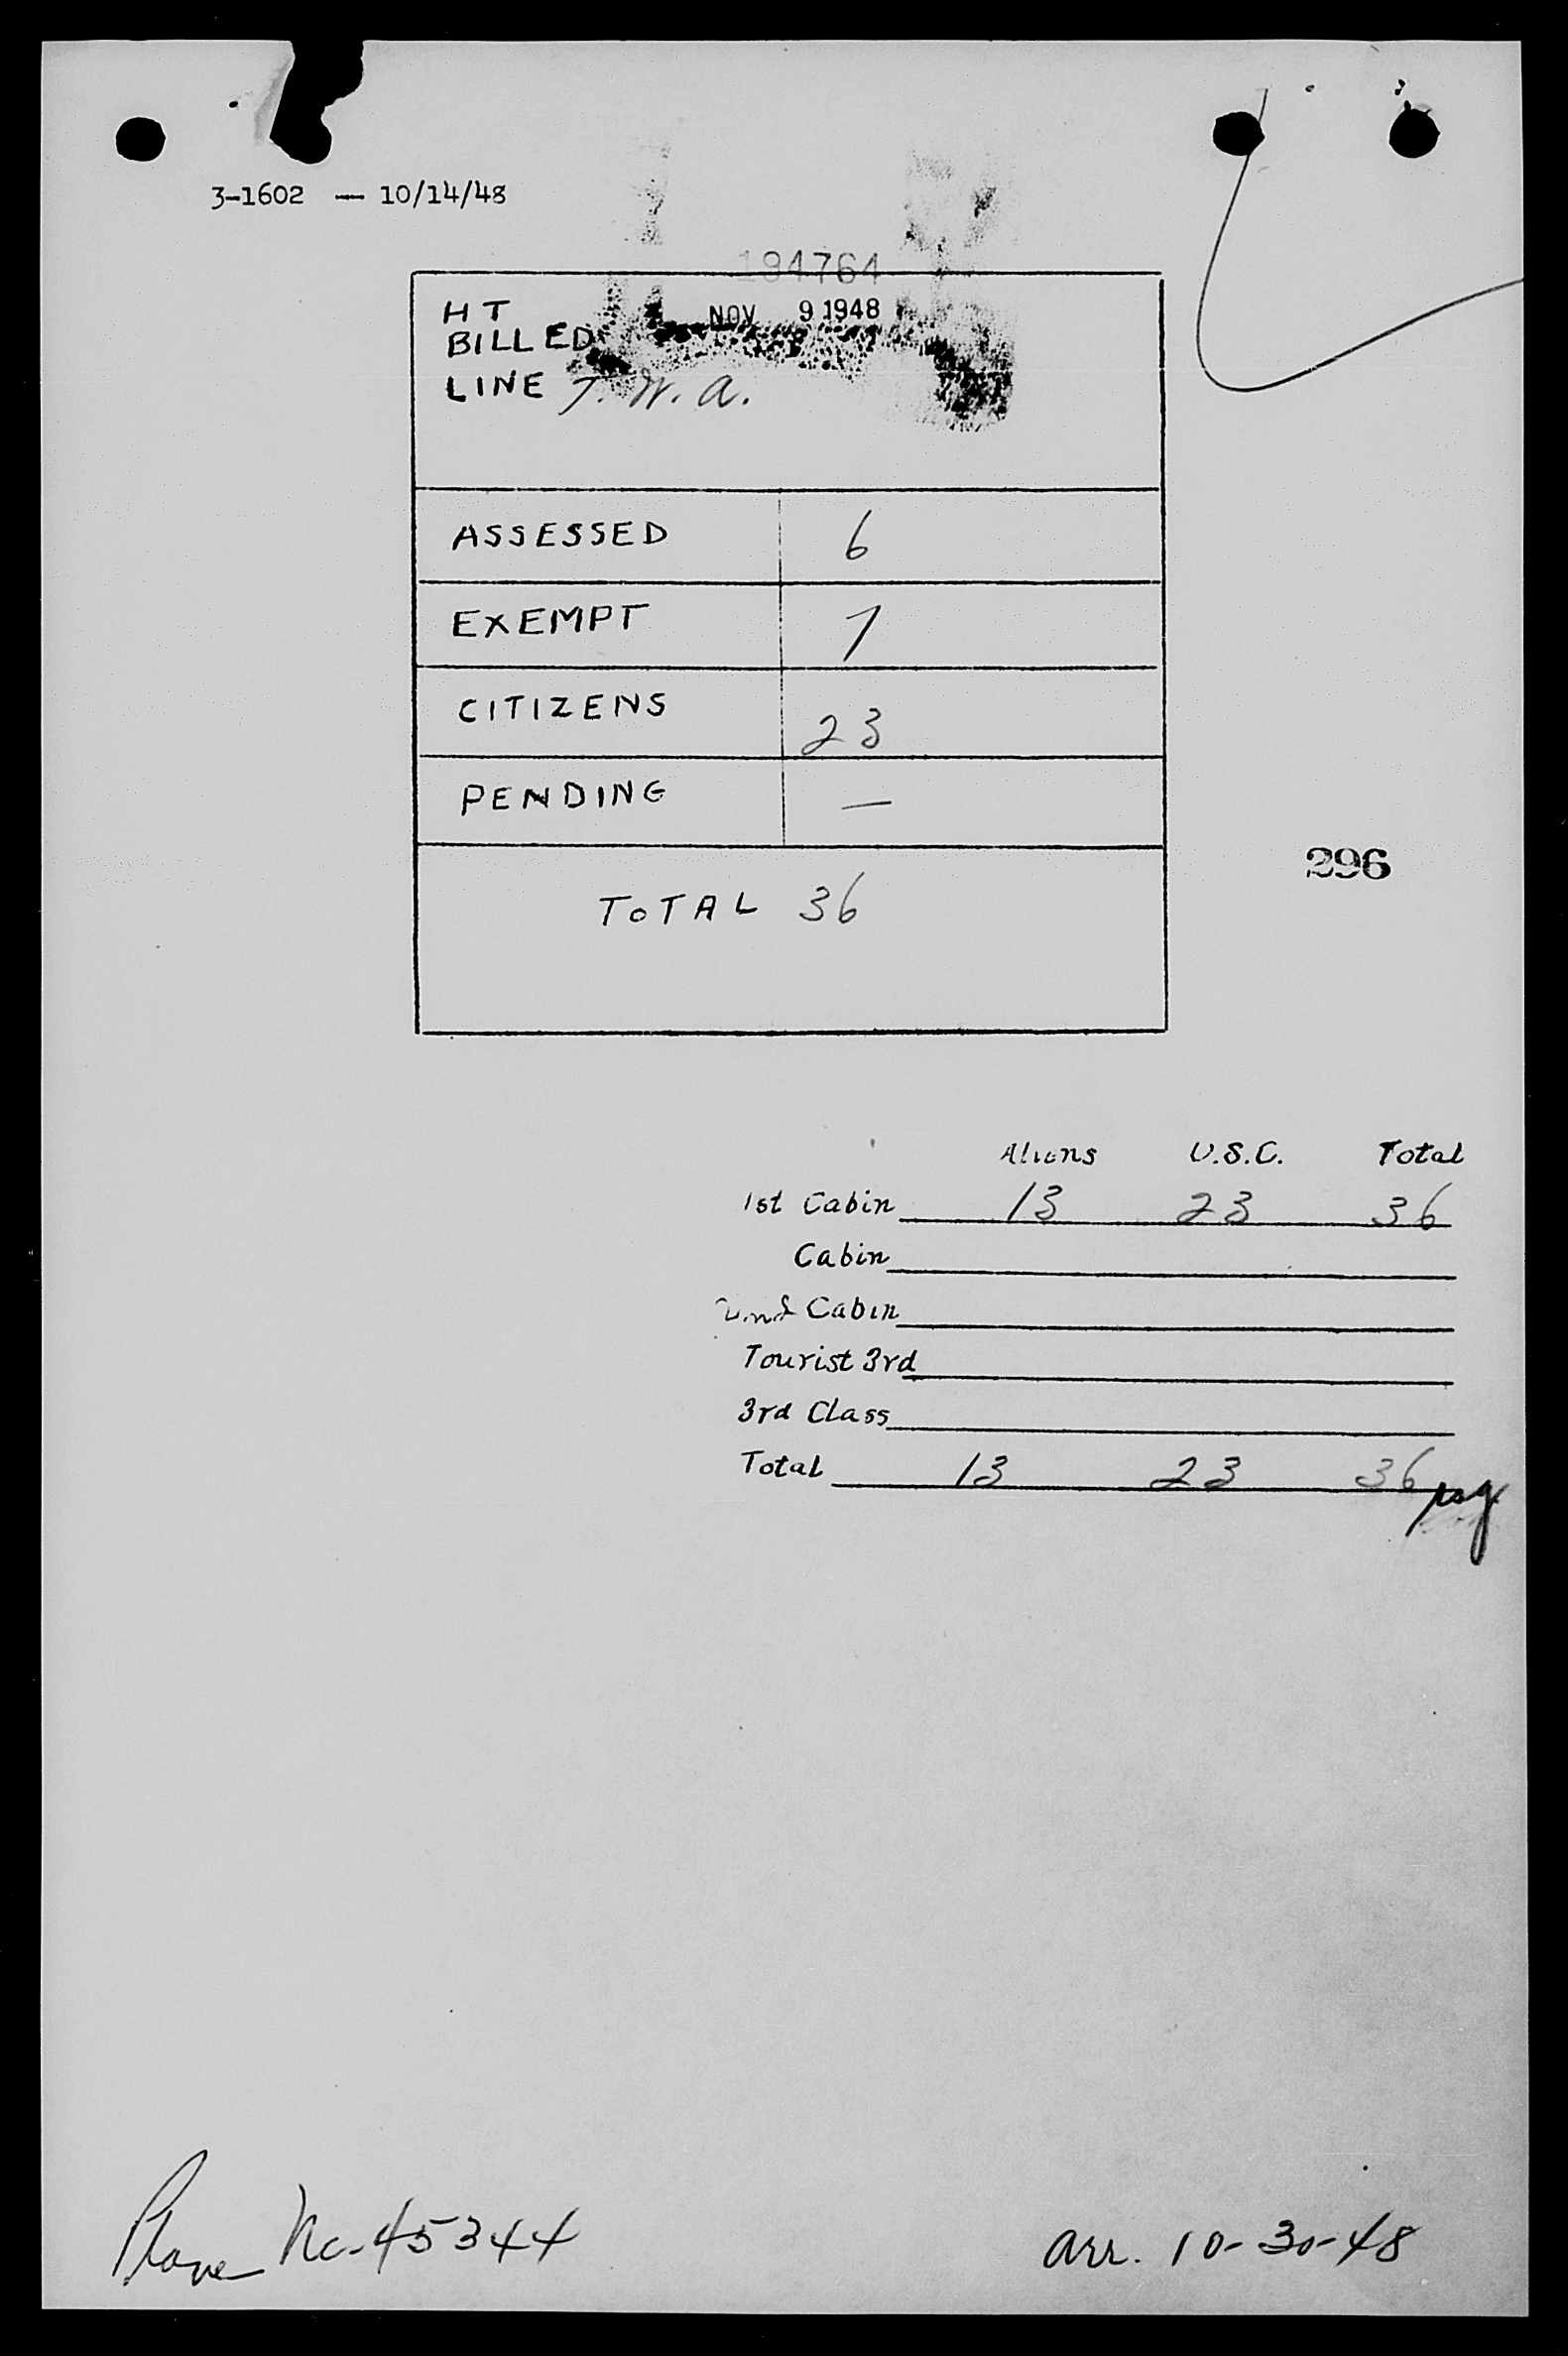 3-1602 — 10/14/48
194764
HT
BILLED NOV 9 1948
LINE T.W.A.
ASSESSED 6
EXEMPT 7
CITIZENS 23
PENDING —
TOTAL 36
296
Aliens U.S.C. Total
1st Cabin 13 23 36
Cabin
2nd Cabin
Tourist 3rd
3rd Class
Total 13 23 36
Plane Nc-45344
arr. 10-30-48